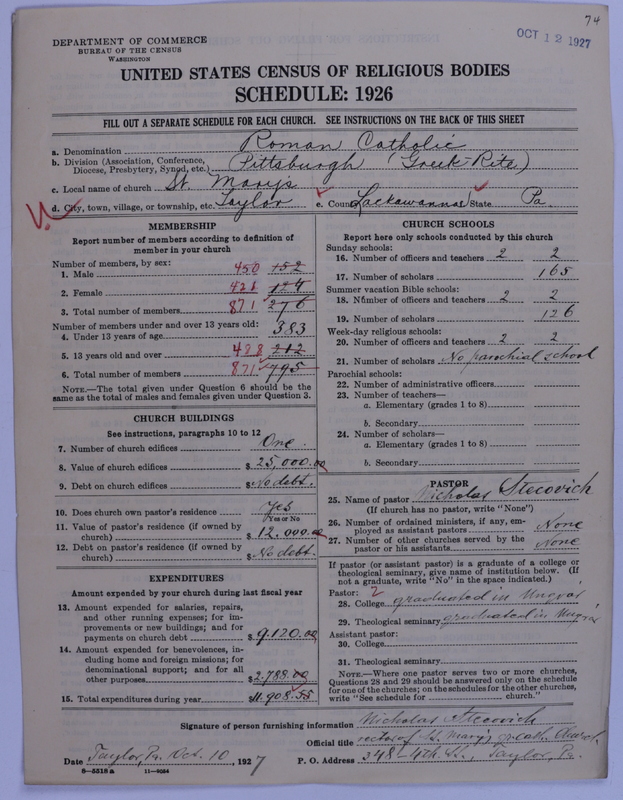 74
OCT 12 1927
DEPARTMENT OF COMMERCE
BUREAU OF THE CENSUS
WASHINGTON
UNITED STATES CENSUS OF RELIGIOUS BODIES
SCHEDULE: 1926
FILL OUT A SEPARATE SCHEDULE FOR EACH CHURCH. SEE INSTRUCTIONS ON THE BACK OF THIS SHEET
a. Denomination Roman Catholic
b. Division (Association, Conference, Diocese, Presbytery, Synod, etc.) Pittsburgh (Greek-Rite)
c. Local name of church St. Mary's
d. City, town, village, or township, etc. Taylor e. County Lackawanna State Pa.
MEMBERSHIP
Report number of members according to definition of
member in your church
Number of members, by sex:
1. Male 450 152
2. Female 421 124
3. Total number of members 871 276
Number of members under and over 13 years old:
4. Under 13 years of age 383
5. 13 years old and over 488 212
6. Total number of members 871 795
NOTE.—The total given under Question 6 should be the
same as the total of males and females given under Question 3.
CHURCH BUILDINGS
See instructions, paragraphs 10 to 12
7. Number of church edifices One.
8. Value of church edifices $ 25,000.00
9. Debt on church edifices $ No debt.
10. Does church own pastor's residence Yes
Yes or No
11. Value of pastor's residence (if owned by
church) $ 12.000.00
12. Debt on pastor's residence (if owned by
church) $ No debt.
EXPENDITURES
Amount expended by your church during last fiscal year
13. Amount expended for salaries, repairs,
and other running expenses; for im-
provements or new buildings; and for
payments on church debt $ 9.120.00
14. Amount expended for benevolences, in-
cluding home and foreign missions; for
denominational support; and for all
other purposes $ 2.788.00
15. Total expenditures during year $ 11.908.55
CHURCH SCHOOLS
Report here only schools conducted by this church
Sunday schools:
16. Number of officers and teachers 2 2
17. Number of scholars 165
Summer vacation Bible schools:
18. Number of officers and teachers 2 2
19. Number of scholars 126
Week-day religious schools:
20. Number of officers and teachers 2 2
21. Number of scholars No parochial school
Parochial schools:
22. Number of administrative officers
23. Number of teachers—
a. Elementary (grades 1 to 8)
b. Secondary
24. Number of scholars—
a. Elementary (grades 1 to 8)
b. Secondary
PASTOR
25. Name of pastor Nicholas Stecovich
(If church has no pastor, write "None")
26. Number of ordained ministers, if any, em-
ployed as assistant pastors None
27. Number of other churches served by the
pastor or his assistants None
If pastor (or assistant pastor) is a graduate of a college or
theological seminary, give name of institution below. (If
not a graduate, write "No" in the space indicated.)
Pastor: 2
28. College graduated in Ungvar
29. Theological seminary graduated in Ungvar
Assistant pastor:
30. College
31. Theological seminary
NOTE.—Where one pastor serves two or more churches,
Questions 28 and 29 should be answered only on the schedule
for one of the churches; on the schedules for the other churches,
write "See schedule for church."
Signature of person furnishing information Nicholas Stecovich
Official title rector of St. Mary's gr. cath. Church
Date Taylor, Pa. Oct. 10, 1927 P. O. Address 348-4th St., Taylor, Pa.
8—5518a 11—9054